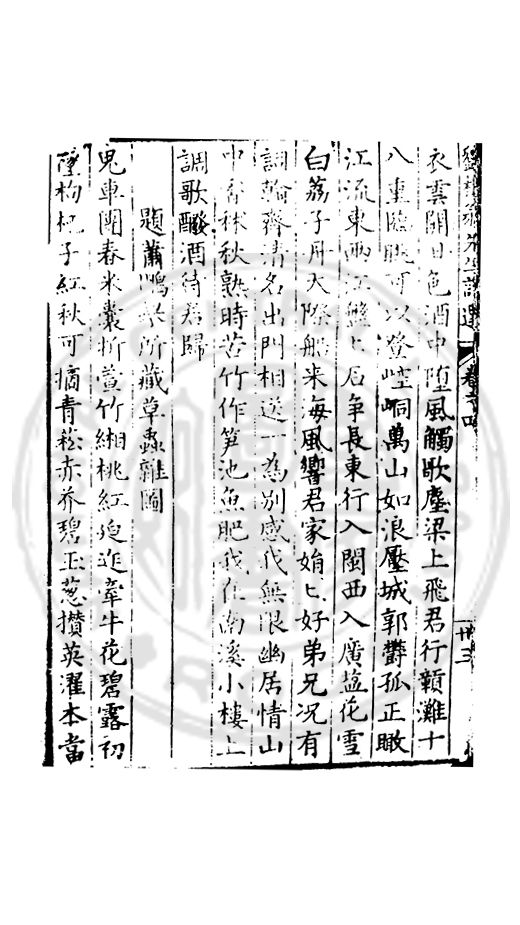 劉槎翁先生詩選 卷之四 廿三
衣雲開日色酒中墮風觸歌塵梁上飛君行贛灘十
八重臨眺可以登崆峒萬山如浪壓城郭欝孤正瞰
江流東西江鱸上石爭長東行入閩西入廣鹽花雪
白荔子丹天際船来海風響君家娟匕好弟兄况有
詞翰齊清名出門相送一為別感我無限幽居情山
中香秫秋熟時苦竹作笋池魚肥我在南溪小樓上
調歌醱酒待君歸
題蕭鵬舉所藏草蟲雜圖
鬼車團春米囊拆萱竹緗桃紅迫迮牽牛花碧露初
墮枸杞子紅秋可摘青菘赤芥碧玉葱攅英濯本當